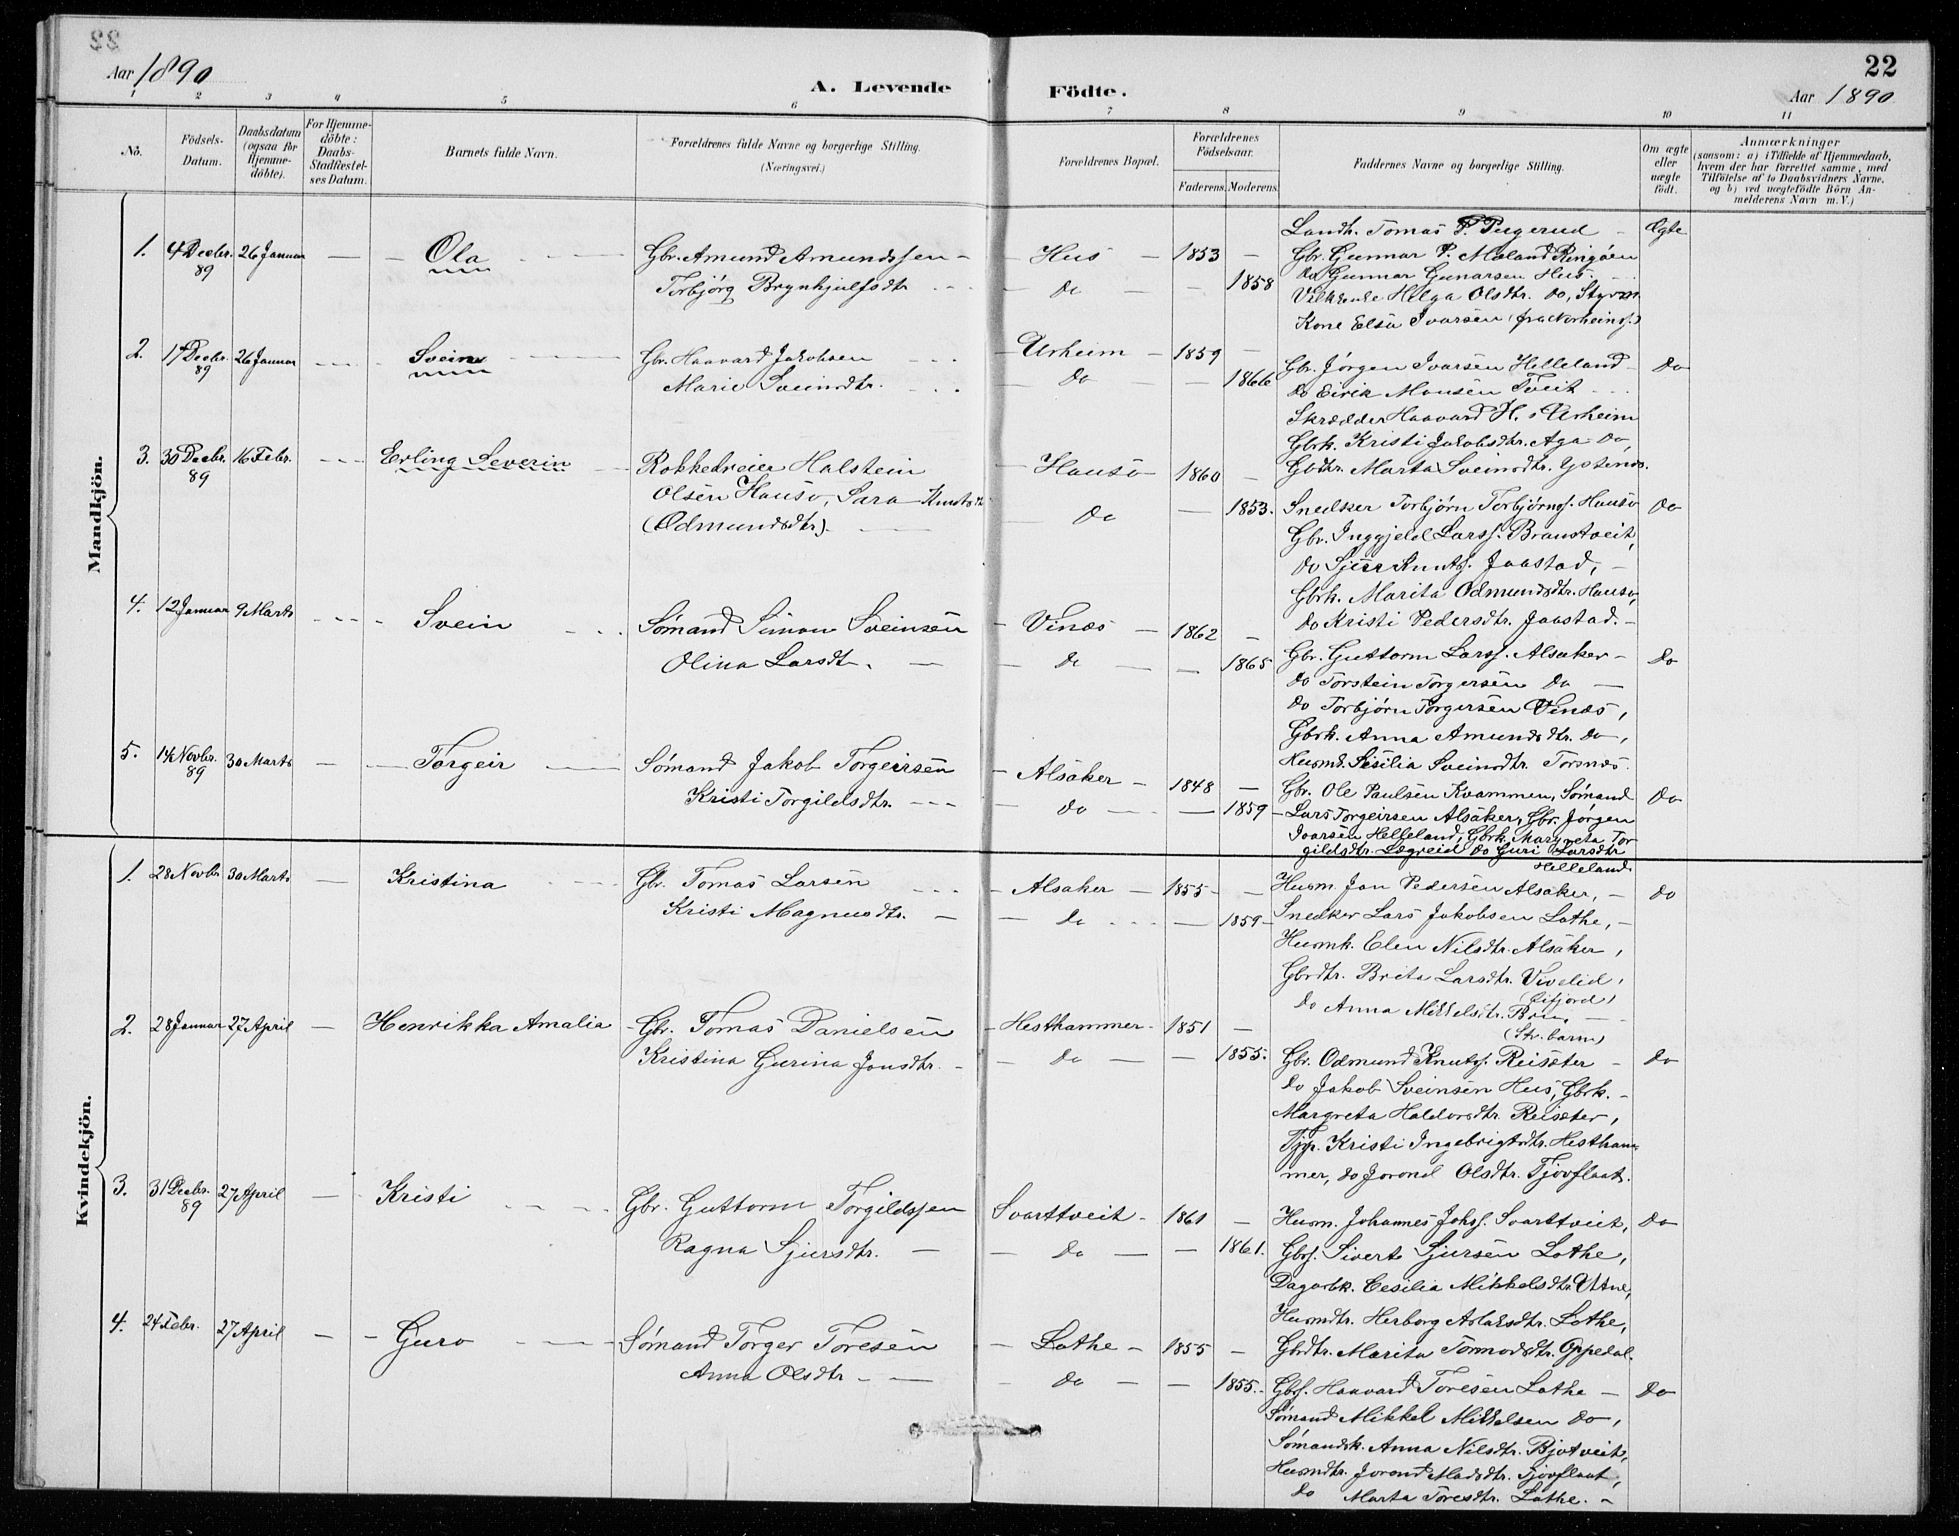 22
Aar 1890
A. Levende Födte.
Aar 1890
1 2 3 4 5 6 7 8 9 10 11
No.
Födsels-Datum.
Daabsdatum (ogsaa for Hjemme-döbte).
For Hjemme-döbte: Daabs-Stadfæstel-ses Datum.
Barnets fulde Navn.
Forældrenes fulde Navne og borgerlige Stilling.
(Næringsvei.)
Forældrenes Bopæl.
Forældrenes Födselsaar.
Faderens. Moderens.
Faddernes Navne og borgerlige Stilling.
Om ægte eller uægte födt.
Anmærkninger
(saasom: a) i Tilfælde af Hjemmedaab,
hvem der har forrettet samme, med
Tilföielse af to Daabsvidners Navne,
og b) ved uægtefödte Börn An-
melderens Navn m. V.)
Mandkjön.
1. 4 Decbr. 89 26 Januar — Ola
Gbr. Amund Amundssen
Torbjörg Brynhjulfsdtr.
Hus 1853
do 1858
Landh. Tomas P.
Gbr. Gunnar P. Maland Ringöen
do Gunnar Gunarsen Hus.
Helga Olsdtr. do, Styrm.
Kone Elsa Ivarsen (fra Norheims.)
Ægte
2. 17 Decbr. 89 26 Januar — Svein
Gbr. Haavard Jakobsen
Marie Sveinsdtr.
Urheim 1859
do 1866
Gbr. Jørgen Ivarsen Helleland
do Eirik Monsen Tveit
Skrædder Haavard H. s Urheim
Gbrk. Kristi Jakobsdtr. Aga do,
Gbdtr. Marta Sveinsdtr.
do
3. 30 Decbr. 89 16 Febr. — Erling Severin
Rokkedreier Halstein
Olsen Hauso, Sara Knutsdtr
(Odmundsdtr).
Hauso 1860
do 1853.
Snedker Torbjörn Torbjörns. Hauso
Gbr. Inggjeld Larss. Braustveit,
do Sjur Knuts. Jaastad,
Gbrk. Marita Odmundsdtr. Hauso,
do Kristi Pedersdtr. Jaastad.
do
4. 12 Januar 9 Marts — Svein
Sømand Simon Sveinsen
Olina Larsdtr.
Vinæs 1862
do 1865
Gbr. Guttorm Larss. Alsaker
do Torstein Torgersen do
do Torbjörn Torgersen Vinæs,
Gbrk. Anna Amundsdtr. do,
Husmd. Sesilia Sveinsdtr. Torsnæs.
do
5. 14 Novbr. 89 30 Marts — Torgeir
Sømand Jakob Torgeirsen
Kristi Torgildsdtr.
Alsaker 1848
do 1859
Gbr. Ole Paulsen Kvammen, Sømand
Lars Torgeirsen Alsaker, Gbr. Jørgen
Ivarsen Helleland, Gbrk. Margreta Tor-
gildsdtr. Lægreid do Guri Larsdtr
Helleland
do
Kvindekjön.
1. 28 Novbr 30 Marts — Kristina
Gbr. Tomas Larsen
Kristi Magnusdtr.
Alsaker 1855
do 1859
Husm. Jan Pedersen Alsaker,
Snedker Lars Jakobsen Lothe,
Husmk. Elen Nilsdtr. Alsaker,
Gbrdtr. Brita Larsdtr. Vivelid,
(Eifjord)
do Anna Mikkelsdtr.
(Str. barm)
do
2. 28 Januar 27 April — Henrikka Amalia
Gbr. Tomas Danielsen
Kristina Gurina Jonsdtr.
Hesthammer 1851
do 1855.
Gbr. Odmund Knuts. Reisæter
do Jakob Sveinsen Hus, Gbrk.
Margreta Haldorsdtr. Reisæter,
Tjp. Kristi Ingebrigtsdtr. Hestham-
mer, do Jorond Olsdtr. Tjovflaat.
do
3. 31 Decbr. 89 27 April — Kristi
Gbr. Guttorm Torgildssen
Ragna Sjursdtr.
Svarttveit 1861
do 1861.
Husm. Johannes Johs. Svarttveit,
Gbs. Sivert Sjursen Lothe,
Dagarbk. Cesilia Mikkelsdtr. Utne,
Husmdtr. Herborg Aslaksdtr. Lothe,
Gbrdtr. Marita Tormodsdtr. Oppedal.
do
4. 24 Febr. 27 April — Guro
Sømand Torger Toresen
Anna Olsdtr
Lothe 1855
do 1855.
Gbs. Haavard Toresen Lothe
Sømand Mikkel Mikkelsen do,
Sømandsk. Anna Nilsdtr. Bjotveit,
Husmdtr. Jorond Madsdtr. Tjovflaat,
do Marta Toresdtr. Lothe.
do